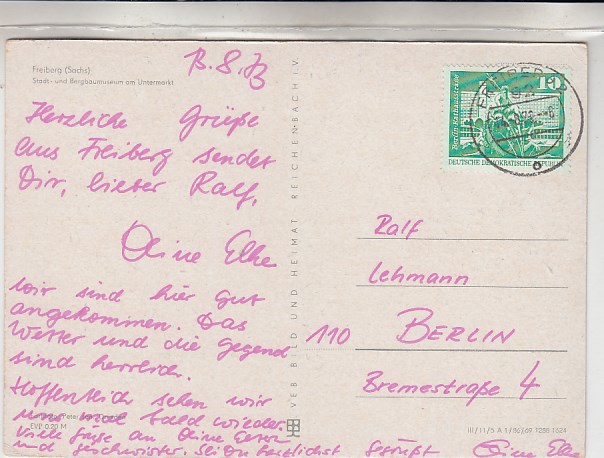 Freiberg (Sachs)
Stadt- und Bergbaumuseum am Untermarkt
Herzliche Grüße
aus Freiberg sendet
Dir, lieber Ralf,
Deine Elke
Wir sind hier gut
angekommen. Das
Wetter und die Gegend
sind herrlich.
Hoffentlich sehen wir
uns mal bald wieder.
Viele Grüße an Deine Eltern
und Geschwister. Sei Du herzlichst gegrüßt Deine Elke
EVP 0,20 M
VEB BILD UND HEIMAT REICHENBACH I.V.
Berlin, Rathausstraße
10
DEUTSCHE DEMOKRATISCHE REPUBLIK
Ralf
Lehmann
110 BERLIN
Bremestraße 4
III/11/5 A 1/86/69